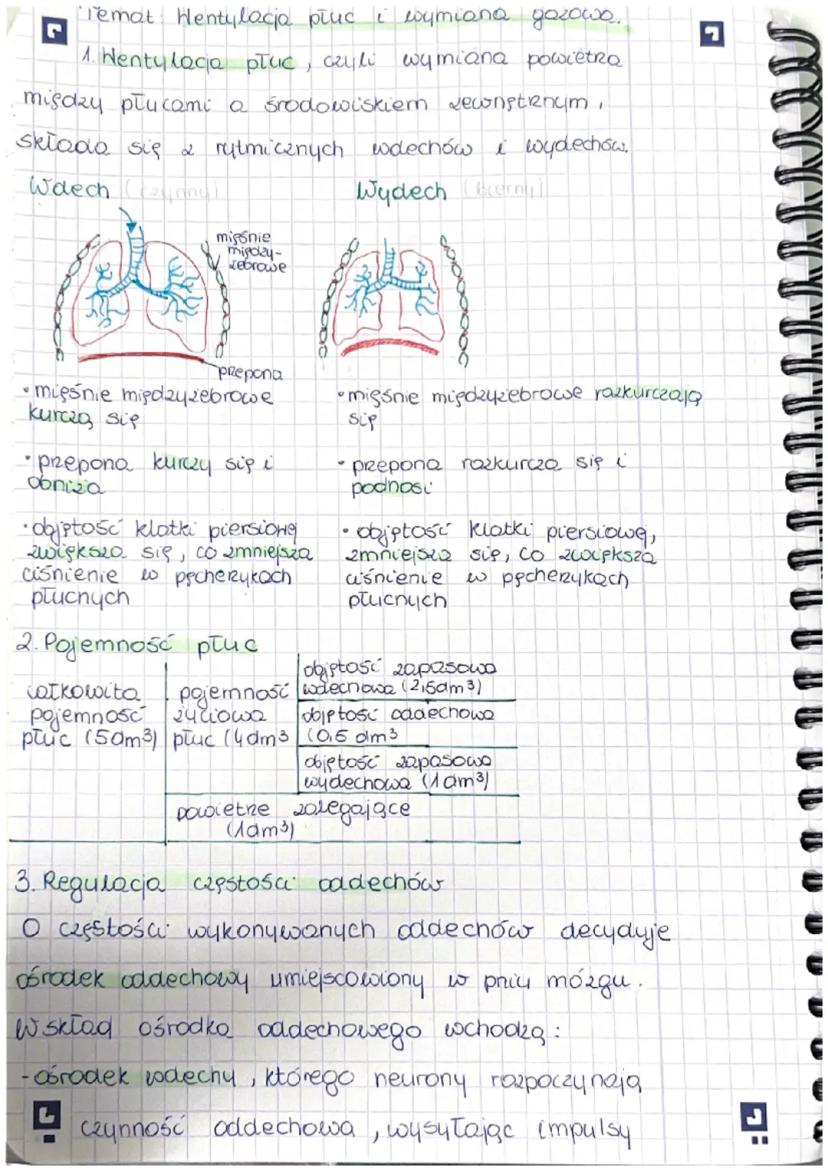 Temat: Wentylacja płuc i wymiana gazowa.
1. Wentylacja płuc, czyli wymiana powietrza
między płucami a środowiskiem zewnętrznym,
składa się z rytmicznych wdechów i wydechów.
Wdech (czynny)
Wydech (bierny)
mięśnie
między-
żebrowe
przepona
• mięśnie międzyżebrowe
kurczą się
• mięśnie międzyżebrowe rozkurczają
się
• przepona kurczy się i
obniża
• przepona rozkurcza się i
podnosi
• objętość klatki piersiowej
zwiększa się, co zmniejsza
ciśnienie w pęcherzykach
płucnych
• objętość klatki piersiową,
zmniejsza się, co zwiększa
ciśnienie w pęcherzykach
płucnych
2. Pojemność płuc
całkowita
pojemność
płuc (5dm³)
pojemność
życiowa
płuc (4dm³
objętość zapasowa
wdechowa (2,5dm³)
objętość oddechowa
(0,5 dm³
objętość zapasowa
wydechowa (1dm³)
powietrze zalegające
(1dm³)
3. Regulacja częstości oddechów
O częstości wykonywanych oddechów decyduje
ośrodek oddechowy umiejscowiony w pniu mózgu.
W skład ośrodka oddechowego wchodzą:
- ośrodek wdechu, którego neurony rozpoczynają
czynność oddechowa, wysyłając impulsy